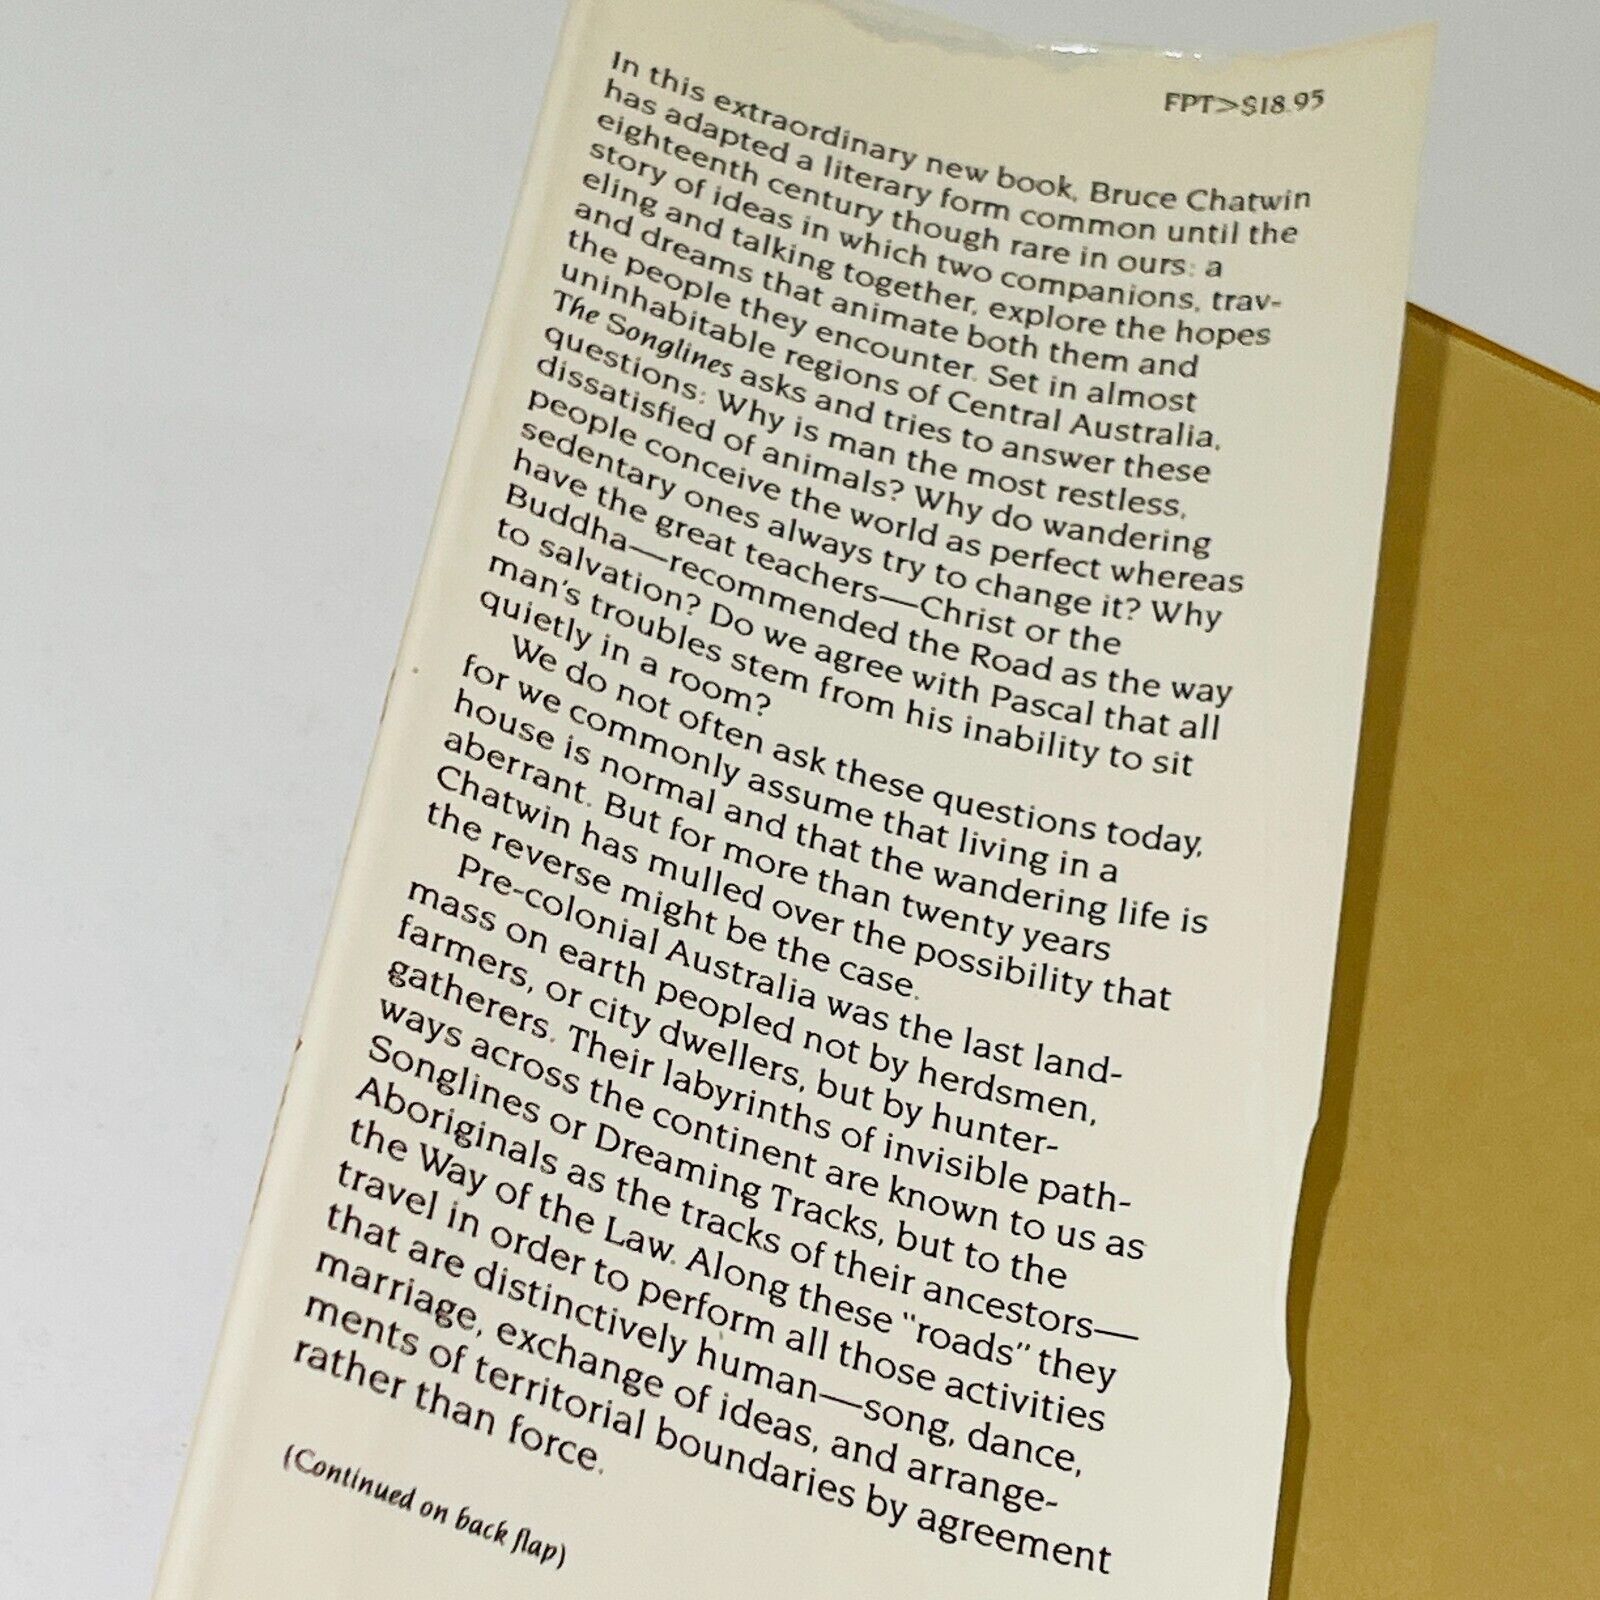 FPT>$18.95
In this extraordinary new book, Bruce Chatwin
has adapted a literary form common until the
eighteenth century though rare in ours: a
story of ideas in which two companions, trav-
eling and talking together, explore the hopes
and dreams that animate both them and
the people they encounter. Set in almost
uninhabitable regions of Central Australia,
The Songlines asks and tries to answer these
questions: Why is man the most restless,
dissatisfied of animals? Why do wandering
people conceive the world as perfect whereas
sedentary ones always try to change it? Why
have the great teachers—Christ or the
Buddha—recommended the Road as the way
to salvation? Do we agree with Pascal that all
man's troubles stem from his inability to sit
quietly in a room?
We do not often ask these questions today,
for we commonly assume that living in a
house is normal and that the wandering life is
aberrant. But for more than twenty years
Chatwin has mulled over the possibility that
the reverse might be the case.
Pre-colonial Australia was the last land-
mass on earth peopled not by herdsmen,
farmers, or city dwellers, but by hunter-
gatherers. Their labyrinths of invisible path-
ways across the continent are known to us as
Songlines or Dreaming Tracks, but to the
Aboriginals as the tracks of their ancestors—
the Way of the Law. Along these "roads" they
travel in order to perform all those activities
that are distinctively human—song, dance,
marriage, exchange of ideas, and arrange-
ments of territorial boundaries by agreement
rather than force.
(Continued on back flap)